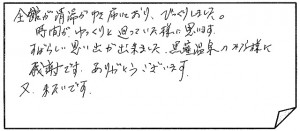 全館が清掃がゆき届いており、びっくりしました。
時間がゆっくりと廻っていた様に思います。
すばらしい思い出が出来ました。黒薙温泉の
感謝です。ありがとうございます。
又、来たいです。